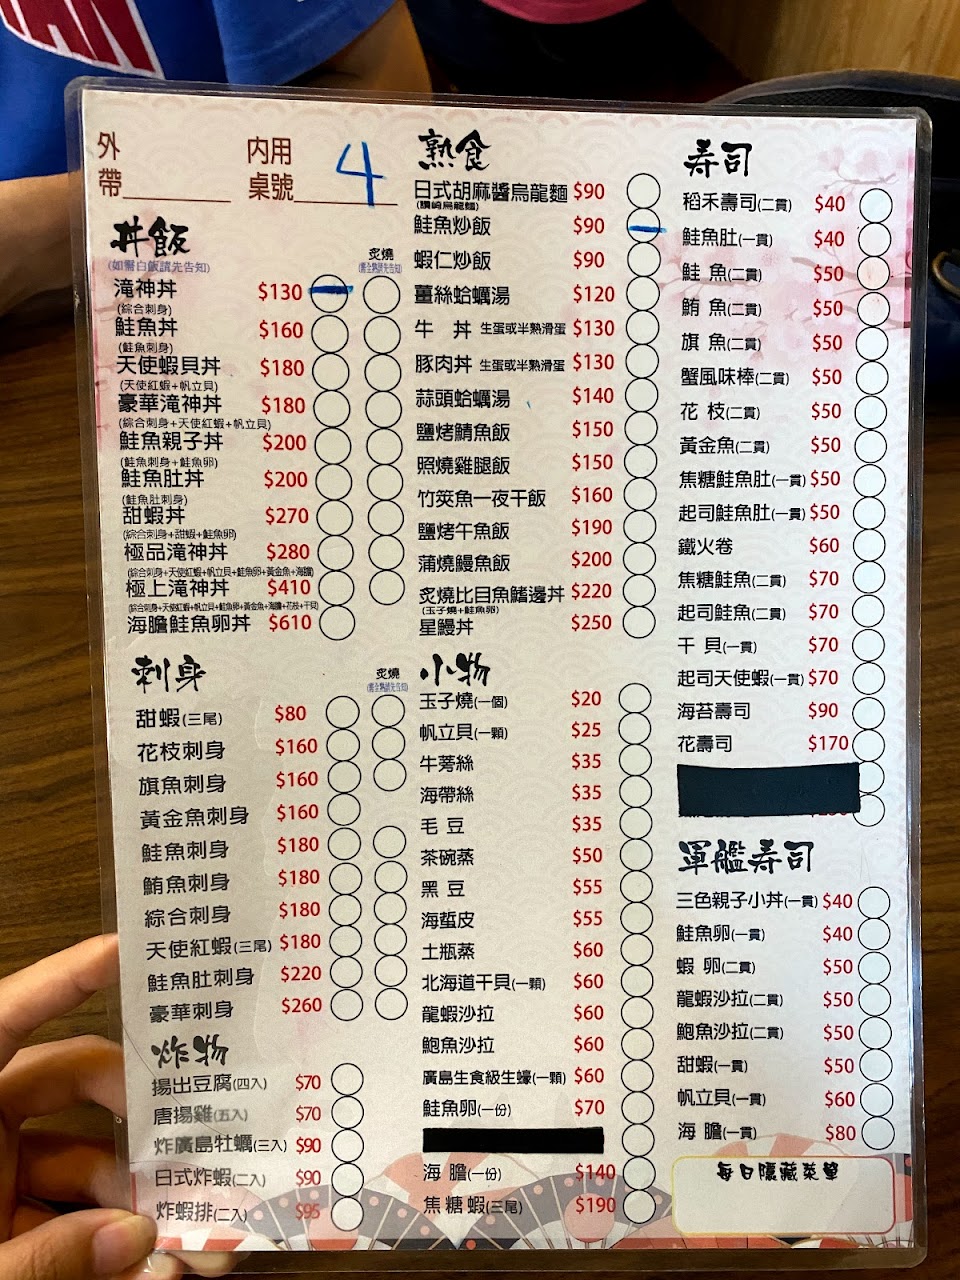 外帶
内用桌號 4
丼飯
(如需白飯請先告知)
炙燒
滝神丼 $130
(綜合刺身)
鮭魚丼 $160
(鮭魚刺身)
天使蝦貝丼 $180
(天使紅蝦+帆立貝)
豪華滝神丼 $180
(綜合刺身+天使紅蝦+帆立貝)
鮭魚親子丼 $200
(鮭魚刺身+鮭魚卵)
鮭魚肚丼 $200
(鮭魚肚刺身)
甜蝦丼 $270
(綜合刺身+甜蝦+鮭魚卵)
極品滝神丼 $280
(綜合刺身+天使紅蝦+帆立貝+鮭魚卵+黃金魚+海膽)
極上滝神丼 $410
(綜合刺身+天使紅蝦+帆立貝+鮭魚卵+黃金魚+海膽+花枝+干貝)
海膽鮭魚卵丼 $610
刺身
炙燒
甜蝦(三尾) $80
花枝刺身 $160
旗魚刺身 $160
黃金魚刺身 $160
鮭魚刺身 $180
鮪魚刺身 $180
綜合刺身 $180
天使紅蝦(三尾) $180
鮭魚肚刺身 $220
豪華刺身 $260
炸物
揚出豆腐(四入) $70
唐揚雞(五入) $70
炸廣島牡蠣(三入) $90
日式炸蝦(二入) $90
炸蝦排(二入) $95
熟食
日式胡麻醬烏龍麵 $90
(讚岐烏龍麵)
鮭魚炒飯 $90
蝦仁炒飯 $90
薑絲蛤蠣湯 $120
牛 丼 生蛋或半熟滑蛋 $130
豚肉丼 生蛋或半熟滑蛋 $130
蒜頭蛤蠣湯 $140
鹽烤鯖魚飯 $150
照燒雞腿飯 $150
竹筴魚一夜干飯 $160
鹽烤午魚飯 $190
蒲燒鰻魚飯 $200
炙燒比目魚鰭邊丼 $220
(玉子燒+鮭魚卵)
星鰻丼 $250
小物
玉子燒(一個) $20
帆立貝(一顆) $25
牛蒡絲 $35
海帶絲 $35
毛 豆 $35
茶碗蒸 $50
黑 豆 $55
海蜇皮 $55
土瓶蒸 $60
北海道干貝(一顆) $60
龍蝦沙拉 $60
鮑魚沙拉 $60
廣島生食級生蠔(一顆) $60
鮭魚卵(一份) $70
海 膽(一份) $140
焦糖蝦(三尾) $190
寿司
稻禾壽司(二貫) $40
鮭魚肚(一貫) $40
鮭 魚(二貫) $50
鮪 魚(二貫) $50
旗 魚(二貫) $50
蟹風味棒(二貫) $50
花 枝(二貫) $50
黃金魚(二貫) $50
焦糖鮭魚肚(一貫) $50
起司鮭魚肚(一貫) $50
鐵火卷 $60
焦糖鮭魚(二貫) $70
起司鮭魚(二貫) $70
干 貝(一貫) $70
起司天使蝦(一貫) $70
海苔壽司 $90
花壽司 $170
軍艦寿司
三色親子小丼(一貫) $40
鮭魚卵(一貫) $40
蝦 卵(二貫) $50
龍蝦沙拉(二貫) $50
鮑魚沙拉(二貫) $50
甜蝦(一貫) $50
帆立貝(一貫) $60
海 膽(一貫) $80
每日隱藏菜單